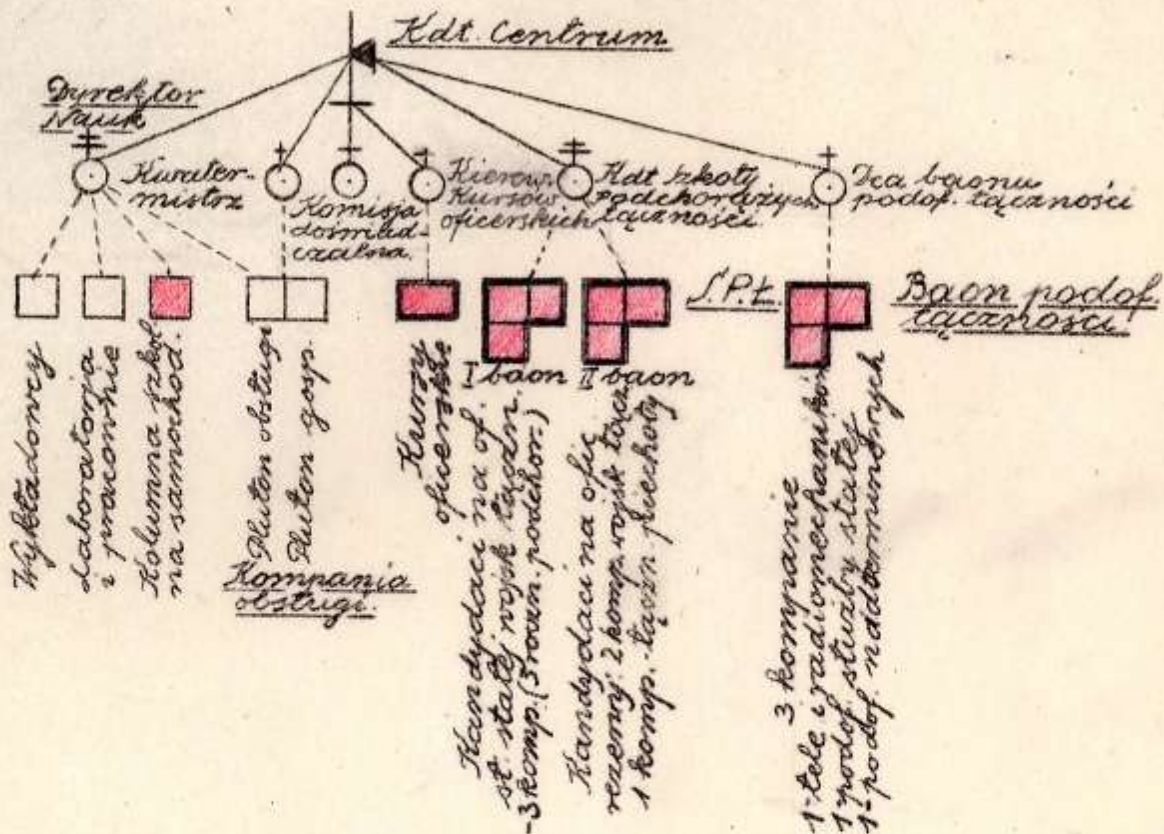 Kdt. Centrum
Dyrektor
Nauk
Kwater-
mistrz
Komisja
doświad-
czalna.
Kierow.
Kursów
oficerskich
Kdt szkoły
Podchorążych
łączności.
Dca baonu
podof. łączności
S.P.Ł.
Baon podof.
łączności
Wykładowcy
Laboratorja
i pracownie
Kolumna szkol.
na samochod.
Pluton obsługi
Pluton gosp.
Kompania
obsługi.
Kursy
oficerskie
I baon
II baon
Kandydaci na of.
st. stałej wojsk łączn.
-3 komp. (3 roczn. podchor.)
Kandydaci na ofic
rezerwy: 2 komp. wojsk łącz.
1 komp. łączn. piechoty
3 kompanie
1-tele i radiomechaników
1-podof. służby stałej
1-podof. nadterminowych